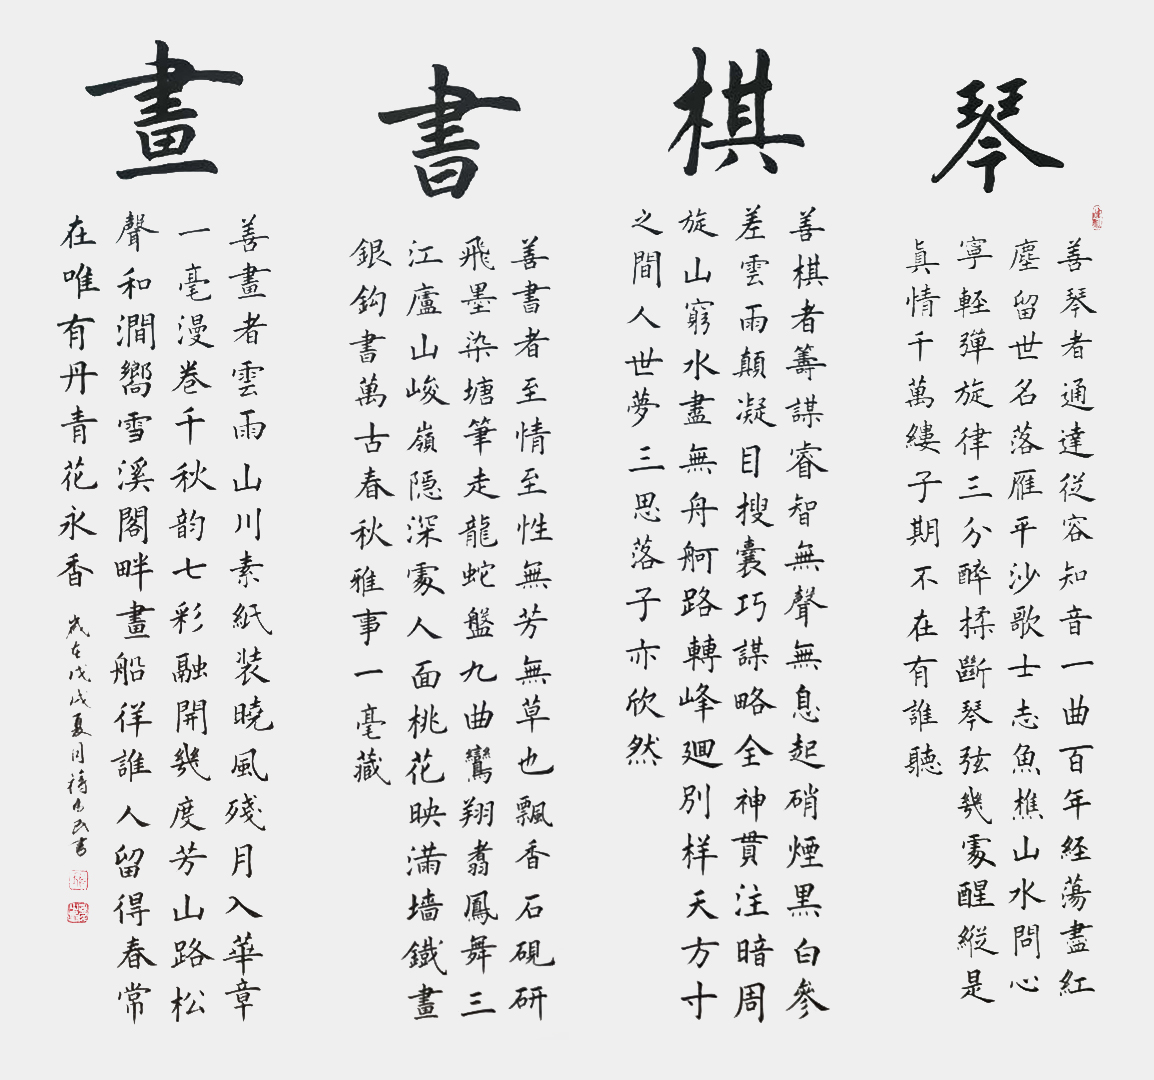 琴
善琴者通達從容知音一曲百年経蕩盡紅
塵留世名落雁平沙歌士志魚樵山水問心
寧輕彈旋律三分醉揉斷琴弦幾處醒縱是
眞情千萬縷子期不在有誰聽
棋
善棋者籌謀睿智無聲無息起硝煙黑白參
差雲雨顛凝目搜囊巧謀略全神貫注暗周
旋山窮水盡無舟舸路轉峰廻別样天方寸
之間人世夢三思落子亦欣然
書
善書者至情至性無芳無草也飄香石硯研
飛墨染塘筆走龍蛇盤九曲鸞翔翥鳳舞三
江廬山峻嶺隠深處人面桃花映满墙鐵畫
銀鈎書萬古春秋雅事一毫藏
畫
善畫者雲雨山川素紙装曉風殘月入華章
一毫漫卷千秋韵七彩融開幾度芳山路松
聲和澗嚮雪溪閣畔畫船徉誰人留得春常
在唯有丹青花永香
歲在戊戌夏月 書